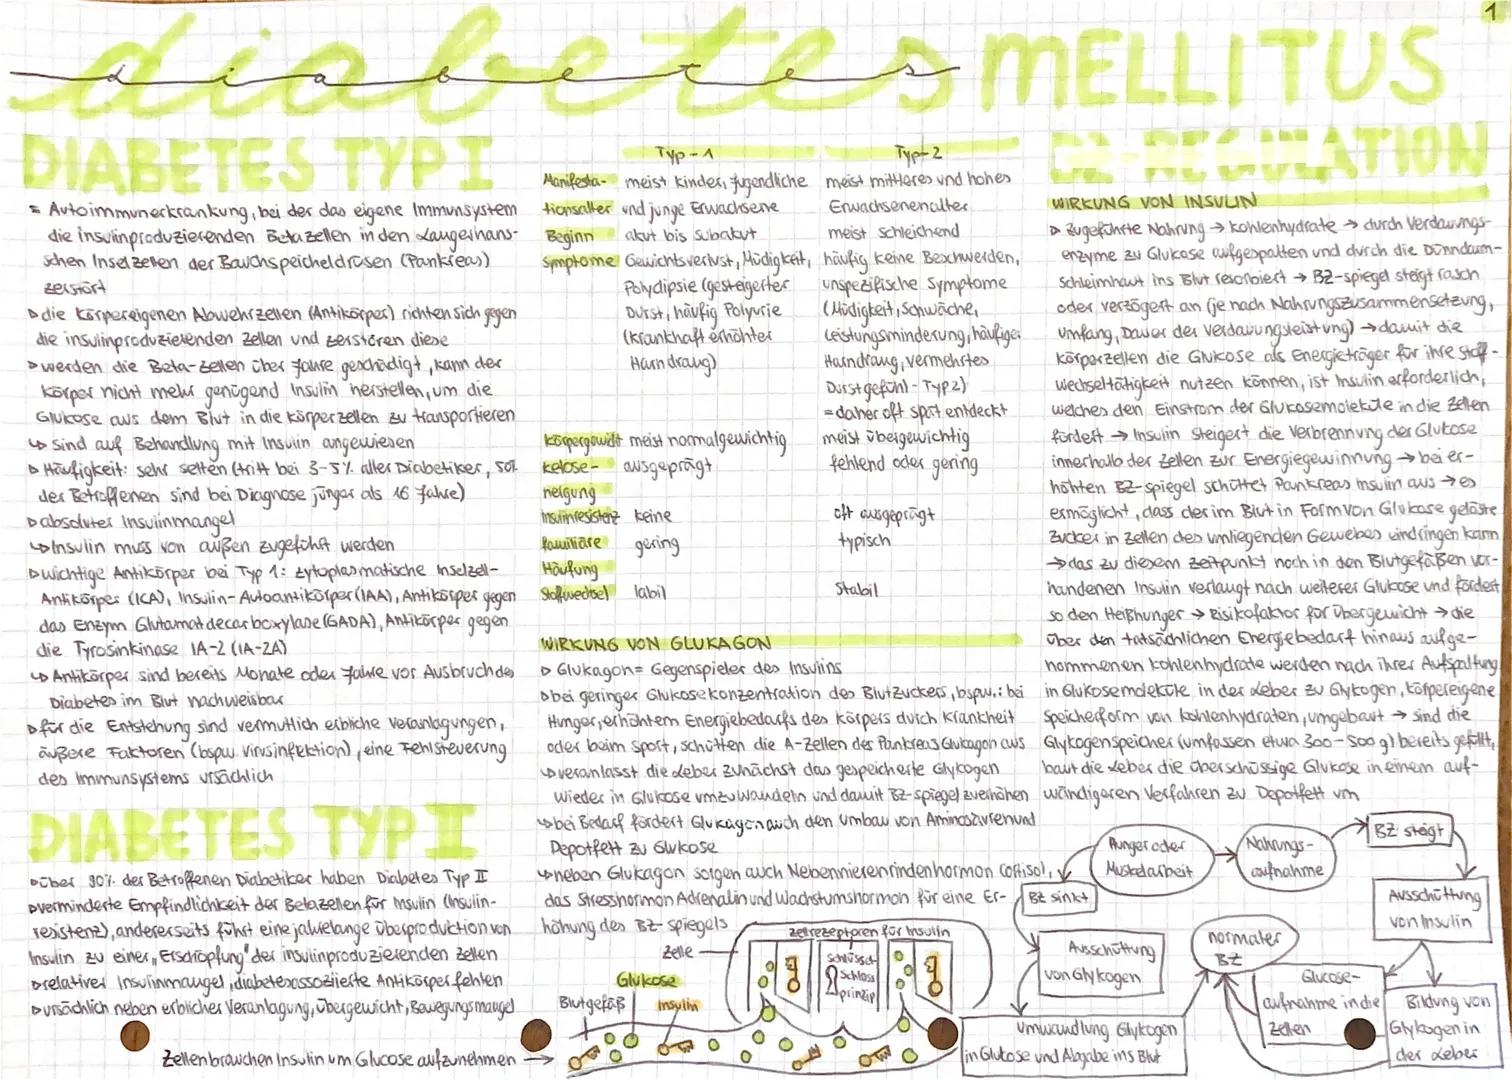 1
diabetes MELLITUS
diabetes
DIABETES TYP I
= Autoimmunerkrankung, bei der das eigene Immunsystem
die insulinproduzierenden Betazellen in den Langerhans-
schen Inselzellen der Bauchspeicheldrüsen (Pankreas)
zerstört
▹ die körpereigenen Abwehrzellen (Antikörper) richten sich gegen
die insulinproduzierenden Zellen und zerstören diese
▹ werden die Beta-Zellen über Jahre geschädigt, kann der
Körper nicht mehr genügend Insulin herstellen, um die
Glukose aus dem Blut in die Körperzellen zu transportieren
↳ sind auf Behandlung mit Insulin angewiesen
▹ Häufigkeit: sehr selten (tritt bei 3-5% aller Diabetiker, 50%
der Betroffenen sind bei Diagnose jünger als 16 Jahre)
▹ absoluter Insulinmangel
↳ Insulin muss von außen zugeführt werden
▹ wichtige Antikörper bei Typ 1: zytoplasmatische Inselzell-
Antikörper (ICA), Insulin-Autoantikörper (IAA), Antikörper gegen
das Enzym Glutamatdecarboxylase (GADA), Antikörper gegen
die Tyrosinkinase IA-2 (IA-2A)
↳ Antikörper sind bereits Monate oder Jahre vor Ausbruch des
Diabetes im Blut nachweisbar
▹ für die Entstehung sind vermutlich erbliche Veranlagungen,
äußere Faktoren (bspw. Virusinfektion), eine Fehlsteuerung
des Immunsystems ursächlich
DIABETES TYP II
▹ über 90% der Betroffenen Diabetiker haben Diabetes Typ II
▹ verminderte Empfindlichkeit der Betazellen für Insulin (Insulin-
resistenz), andererseits führt eine jahrelange Überproduktion von
Insulin zu einer „Erschöpfung" der insulinproduzierenden Zellen
▹ relativer Insulinmangel, diabetesassoziierte Antikörper fehlen
▹ ursächlich neben erblicher Veranlagung, Übergewicht, Bewegungsmangel
Typ-1 Typ-2
Manifesta- meist Kinder, Jugendliche meist mittleres und hohes
tionsalter und junge Erwachsene Erwachsenenalter
Beginn akut bis subakut meist schleichend
Symptome Gewichtsverlust, Müdigkeit, häufig keine Beschwerden,
Polydipsie (gesteigerter unspezifische Symptome
Durst, häufig Polyurie (Müdigkeit, Schwäche,
(krankhaft erhöhter Leistungsminderung, häufiger
Harndrang) Harndrang, vermehrtes
Durstgefühl - Typ 2)
= daher oft spät entdeckt
Körpergewicht meist normalgewichtig meist übergewichtig
Ketose- ausgeprägt fehlend oder gering
neigung
Insulinresistenz keine oft ausgeprägt
familiäre gering typisch
Häufung
Stoffwechsel labil Stabil
WIRKUNG VON GLUKAGON
▹ Glukagon = Gegenspieler des Insulins
▹ bei geringer Glukosekonzentration des Blutzuckers, bspw.: bei
Hunger, erhöhtem Energiebedarfs des Körpers durch Krankheit
oder beim Sport, schütten die A-Zellen der Pankreas Glukagon aus
↳ veranlasst die Leber zunächst das gespeicherte Glykogen
wieder in Glukose umzuwandeln und damit BZ-spiegel zu erhöhen
↳ bei Bedarf fördert Glukagon auch den Umbau von Aminosäuren und
Depotfett zu Glukose
↳ neben Glukagon sorgen auch Nebennierenrindenhormon Cortisol,
das Stresshormon Adrenalin und Wachstumshormon für eine Er-
höhung des BZ-spiegels
Zellrezeptoren für Insulin
Zelle
Schlüssel-
Schloss
prinzip
Glukose
Blutgefäß
Insulin
Zellen brauchen Insulin um Glucose aufzunehmen →
BZ-REGULATION
WIRKUNG VON INSULIN
▹ zugeführte Nahrung → Kohlenhydrate → durch Verdauungs-
enzyme zu Glukose aufgespalten und durch die Dünndarm-
schleimhaut ins Blut resorbiert → BZ-spiegel steigt rasch
oder verzögert an (je nach Nahrungszusammensetzung,
Umfang, Dauer der Verdauungsleistung) → damit die
Körperzellen die Glukose als Energieträger für ihre Stoff-
wechseltätigkeit nutzen können, ist Insulin erforderlich,
welches den Einstrom der Glukosemoleküle in die Zellen
fördert → Insulin steigert die Verbrennung der Glukose
innerhalb der Zellen zur Energiegewinnung → bei er-
höhten BZ-spiegel schüttet Pankreas Insulin aus → es
ermöglicht, dass der im Blut in Form von Glukose gelöste
Zucker in Zellen des umliegenden Gewebes eindringen kann
→ das zu diesem Zeitpunkt noch in den Blutgefäßen vor-
handenen Insulin verlangt nach weiterer Glukose und fördert
so den Heißhunger → Risikofaktor für Übergewicht → die
über den tatsächlichen Energiebedarf hinaus aufge-
nommenen Kohlenhydrate werden nach ihrer Aufspaltung
in Glukosemoleküle in der Leber zu Glykogen, körpereigene
Speicherform von Kohlenhydraten, umgebaut → sind die
Glykogenspeicher (umfassen etwa 300-500 g) bereits gefüllt,
baut die Leber die überschüssige Glukose in einem auf-
wändigeren Verfahren zu Depotfett um
Hunger oder
Muskelarbeit
Nahrungs-
aufnahme
BZ steigt
BZ sinkt
Ausschüttung
von Insulin
Ausschüttung
von Glykogen
normaler
BZ
Glucose-
aufnahme in die
Zellen
Bildung von
Glykogen in
der Leber
Umwandlung Glykogen
in Glukose und Abgabe ins Blut